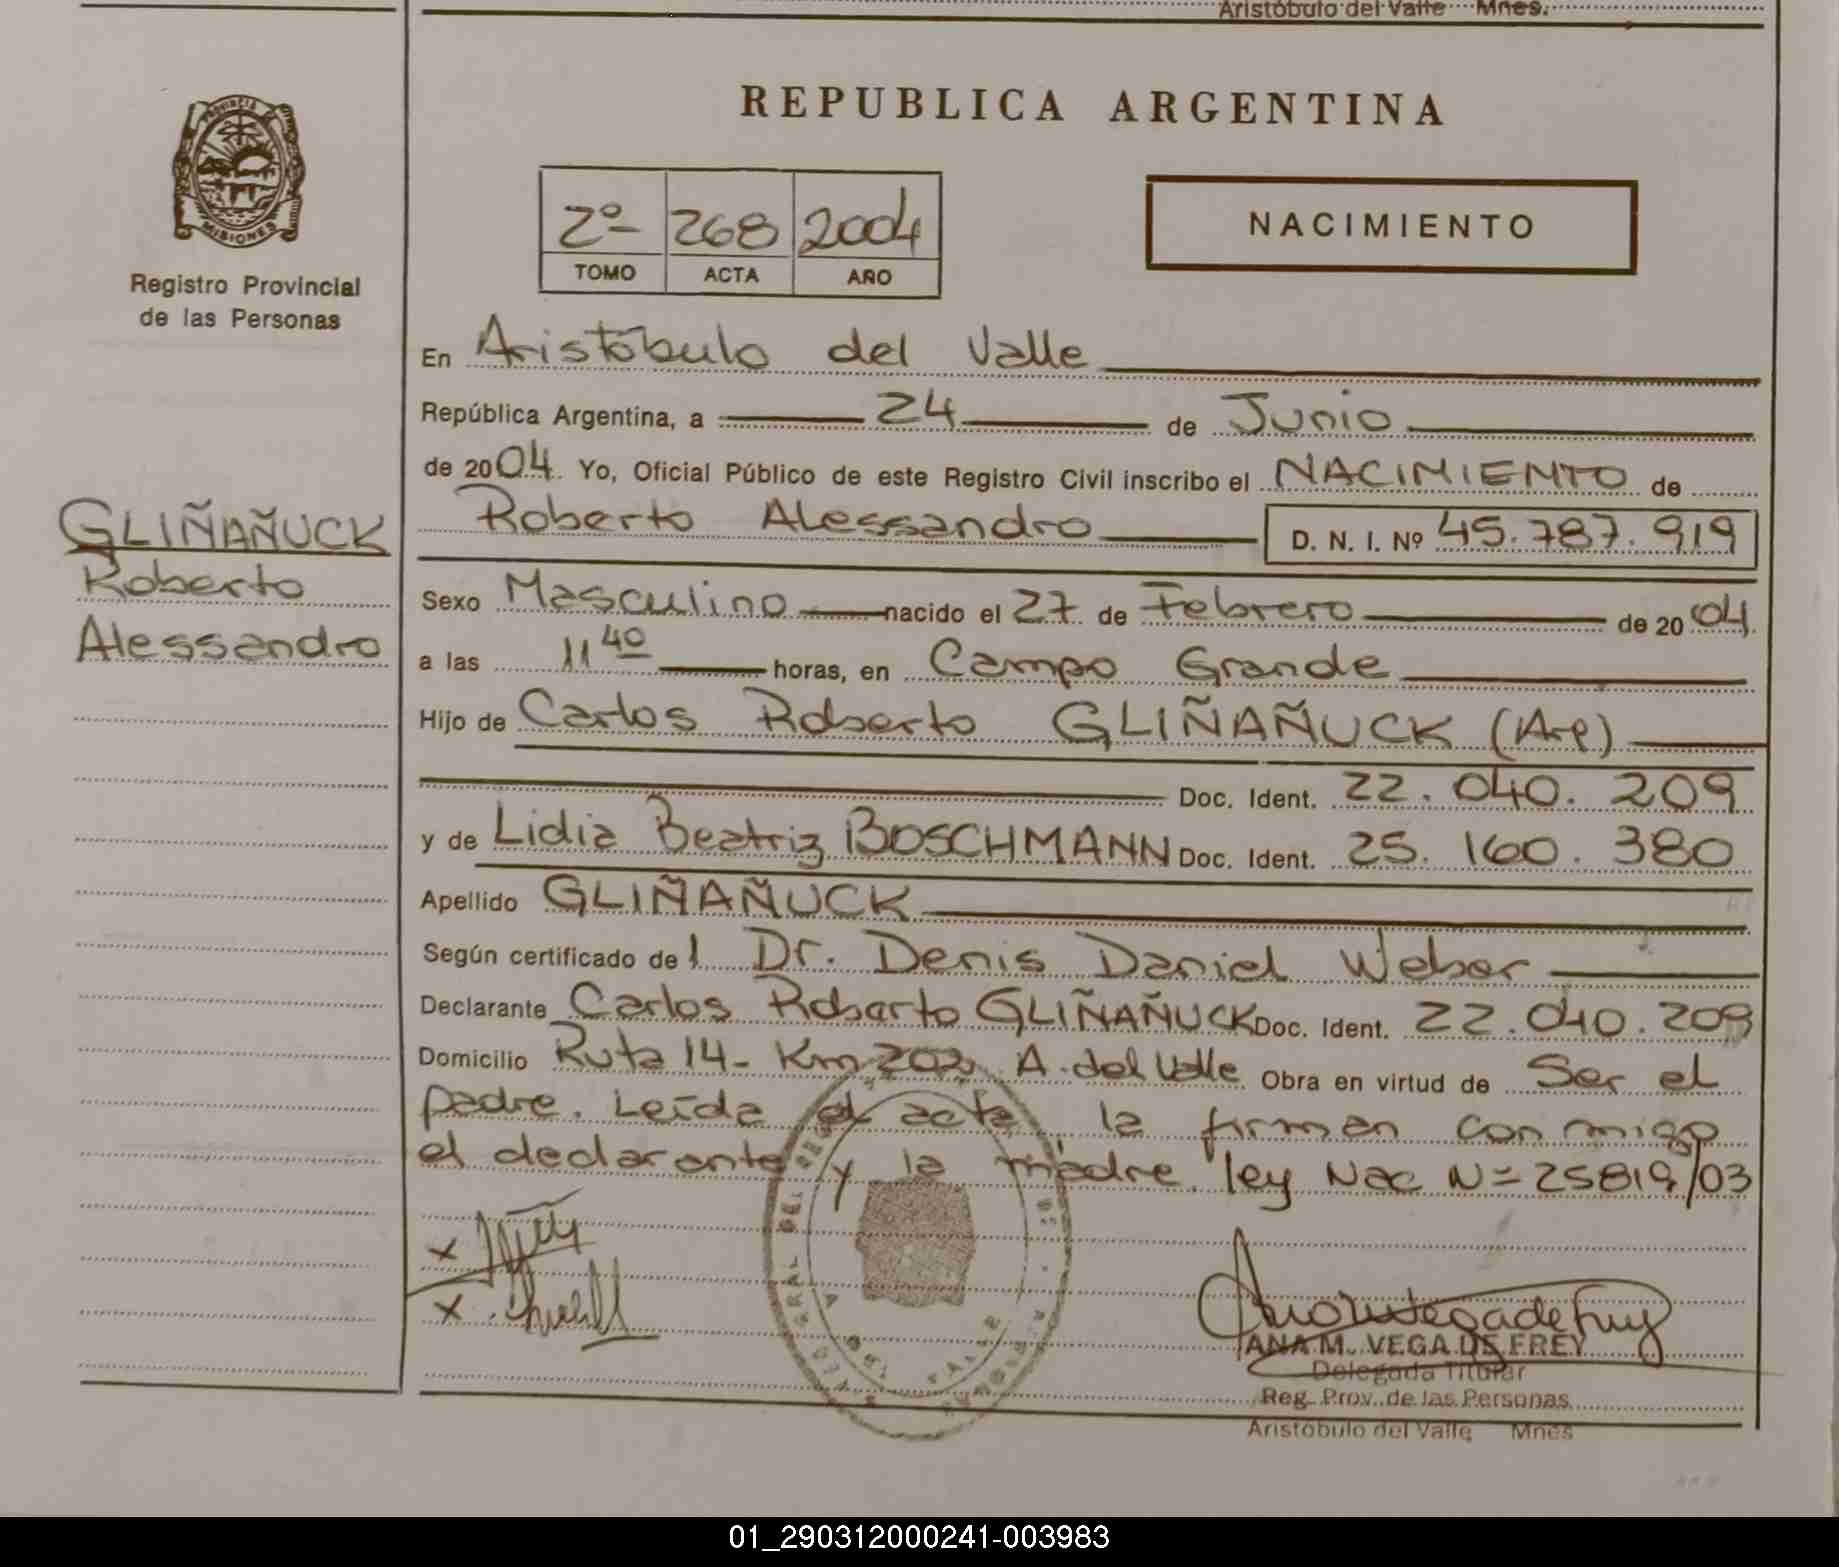 Aristóbulo del Valle Mnes.
REPUBLICA ARGENTINA
PROVINCIA
MISIONES
Registro Provincial
de las Personas
2º 268 2004
TOMO ACTA AÑO
NACIMIENTO
En Aristóbulo del Valle
República Argentina, a 24 de Junio
de 2004. Yo, Oficial Público de este Registro Civil inscribo el NACIMIENTO de
Roberto Alessandro D. N. I. Nº 45.787.919
GLIÑAÑUCK
Roberto
Alessandro
Sexo Masculino nacido el 27 de Febrero de 2004
a las 11 40 horas, en Campo Grande
Hijo de Carlos Roberto GLIÑAÑUCK (Arg)
Doc. Ident. 22.040.209
y de Lidia Beatriz BOSCHMANN Doc. Ident. 25.160.380
Apellido GLIÑAÑUCK
Según certificado del Dr. Denis Daniel Weber
Declarante Carlos Roberto GLIÑAÑUCK Doc. Ident. 22.040.209
Domicilio Ruta 14- Km 202 A. del Valle Obra en virtud de Ser el
padre. Leída el acta, la firman conmigo
el declarante y la madre. ley Nac Nº 25819/03
x
x
ANA M. VEGA DE FREY
Delegada Titular
Reg. Prov. de las Personas
Aristóbulo del Valle Mnes
01_290312000241-003983